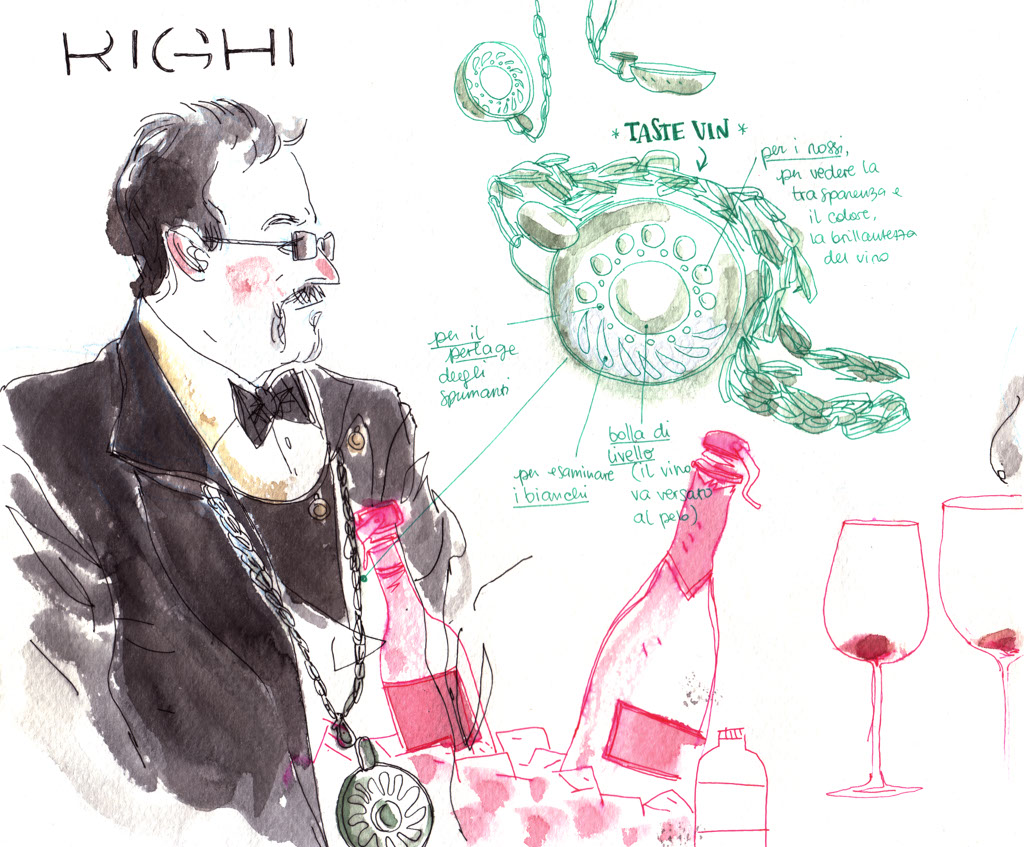 RIGHI
* TASTE VIN *
per i rossi,
per vedere la
trasparenza e
il colore,
la brillantezza
del vino
per il
perlage
degli
spumanti
per esaminare
i bianchi
bolla di
livello
(il vino
va versato
al pelo)